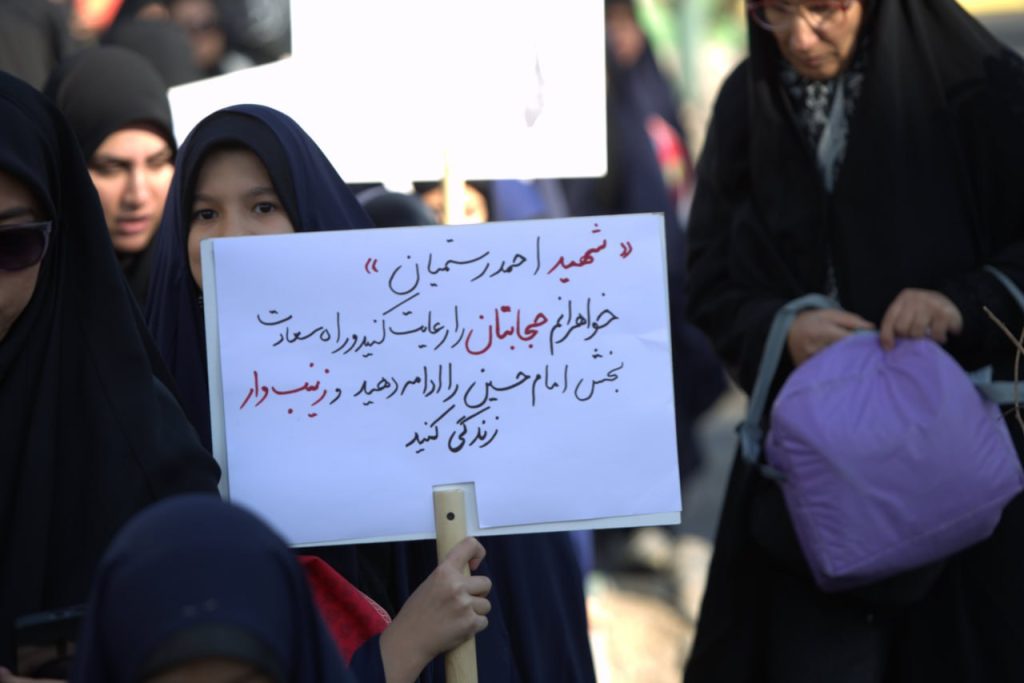 « شهید احمد رستمیان »
خواهرانم حجابتان را رعایت کنید و راه سعادت
بخش امام حسین را ادامه دهید و زینب وار
زندگی کنید